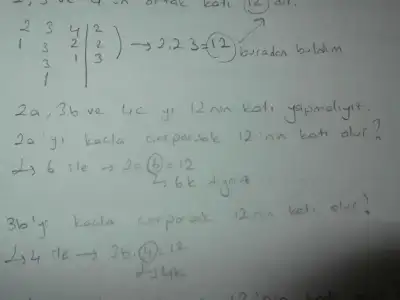 2, 3 ve 4 'ün ortak katı 12 dir.
2 3 4 | 2
1 3 2 | 2 → 2.2.3=12 buradan buldum
3 1 | 3
1
2a, 3b ve 4c yi 12nin katı yapmalıyız.
2a'yı kaçla çarparsak 12'nin katı olur?
↳ 6 ile → 2. 6 = 12
↳ 6k
3b'yi kaçla çarparsak 12'nin katı olur?
↳ 4 ile → 3b. 4 = 12
↳ 4k
12'nin katı